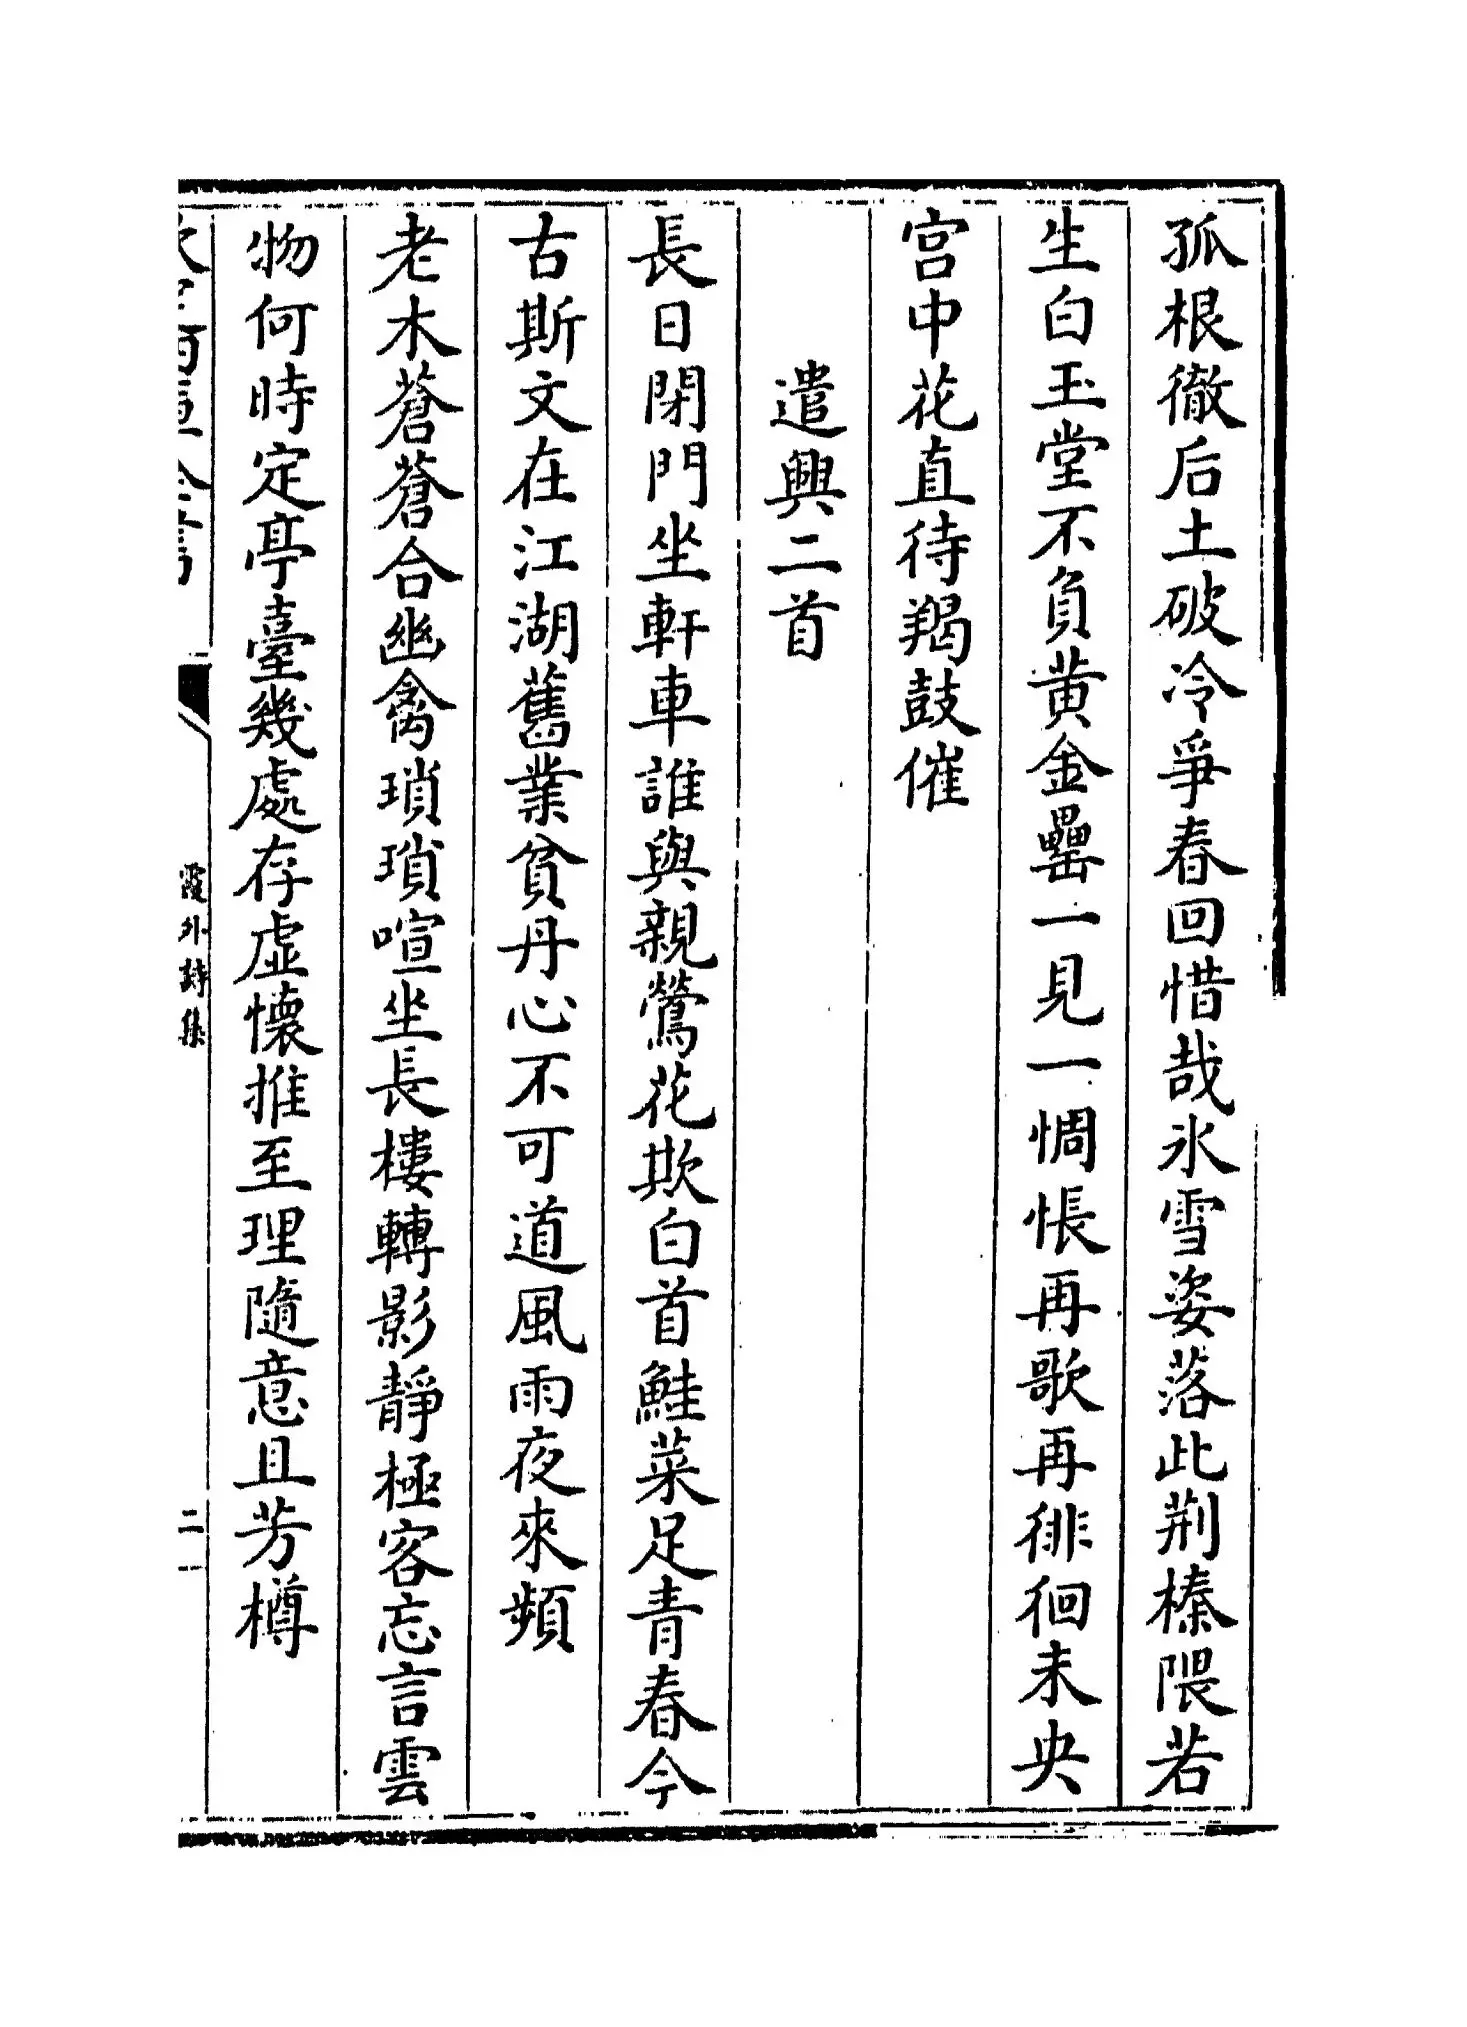 孤根徹后土破冷爭春回惜哉氷雪姿落此荆榛隈若
生白玉堂不負黄金罍一見一惆悵再歌再徘徊未央
宫中花直待羯鼓催
遣興二首
長日閉門坐軒車誰與親鶯花欺白首鮭菜足青春今
古斯文在江湖舊業貧丹心不可道風雨夜來頻
老木蒼蒼合幽禽瑣瑣喧坐長樓轉影靜極客忘言雲
物何時定亭臺幾處存虚懐推至理隨意且芳樽
霞外詩集
二